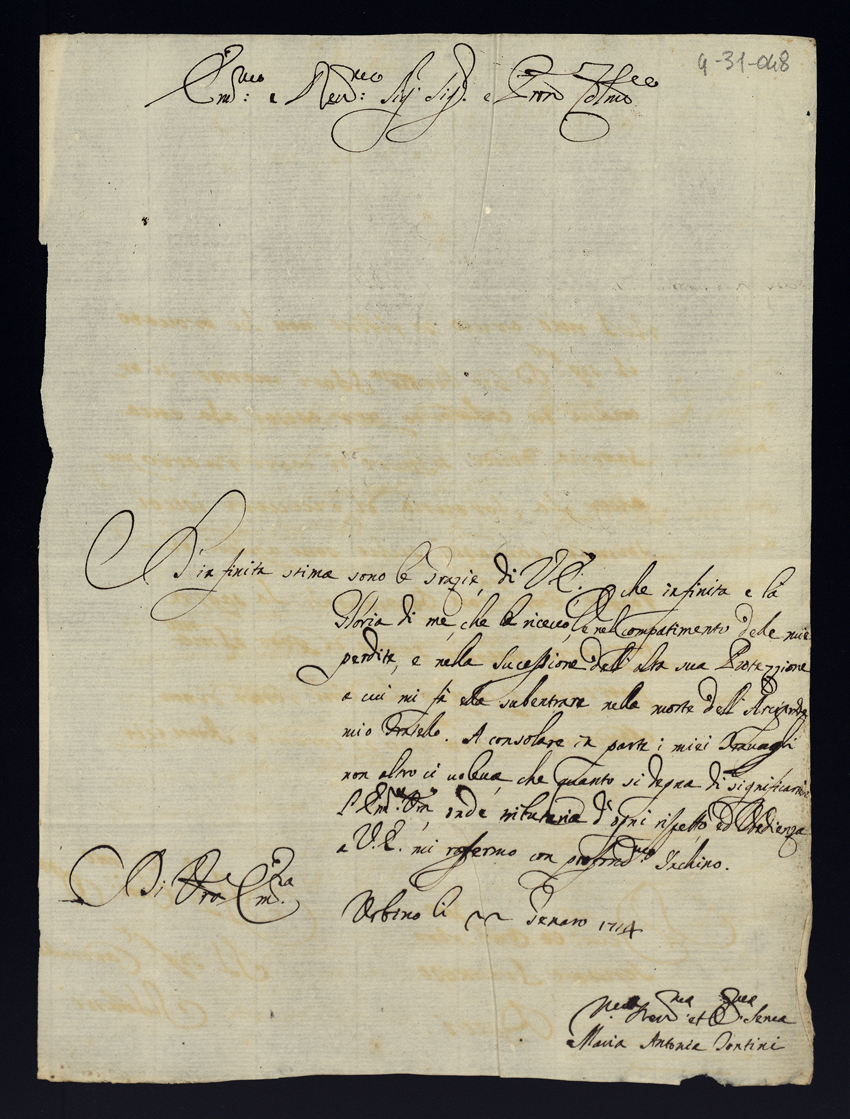 9-31-048
Em.mo e Rev.mo Sig.r Sig.r e Pron Colmo
D'infinita stima sono le Grazie di V.E. che infinita e la
Gloria di me, che le ricevo, e nel compatimento delle mie
perdite, e nella sucessione dell'alta sua Protezzione
a cui mi fà ella subentrare nella morte dell'
mio Fratello. A consolare in parte i miei Travagli
non altro ci voleva, che quanto si degna di significarmi
l'Em.za Vra, onde tributaria d'ogni rispetto, ed Obedienza
a V.E. mi rafermo con profond.mo Inchino.
Di Vra Em.za
Urbino li 22 Genaro 1714
et Serva
Maria Antonia Fontini